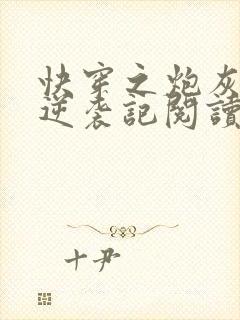 快穿之炮灰
逆袭記閱讀
十尹